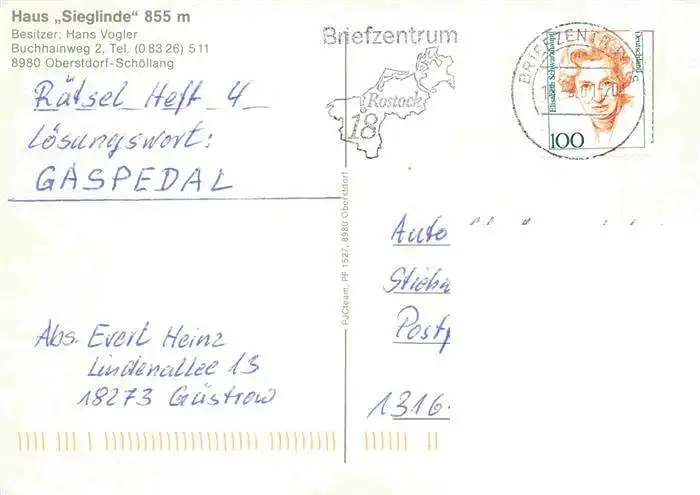 Haus „Sieglinde“ 855 m
Besitzer: Hans Vogler
Buchhainweg 2, Tel. (0 83 26) 5 11
8980 Oberstdorf-Schöllang
Rätsel Heft 4
Lösungswort:
GASPEDAL
Abs. Evert Heinz
Lindenallee 13
18273 Güstrow
PJCteam, PF 1527, 8980 Oberstdorf
Briefzentrum
Rostock
18
BRIEFZENTRUM
Elisabeth Schwarzhaupt
Deutschland
100
Auto
1316